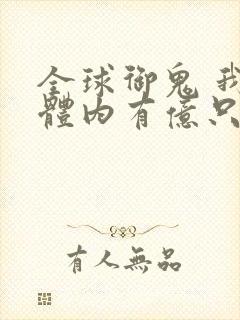 全球御鬼 我
體內有億只
有人無品